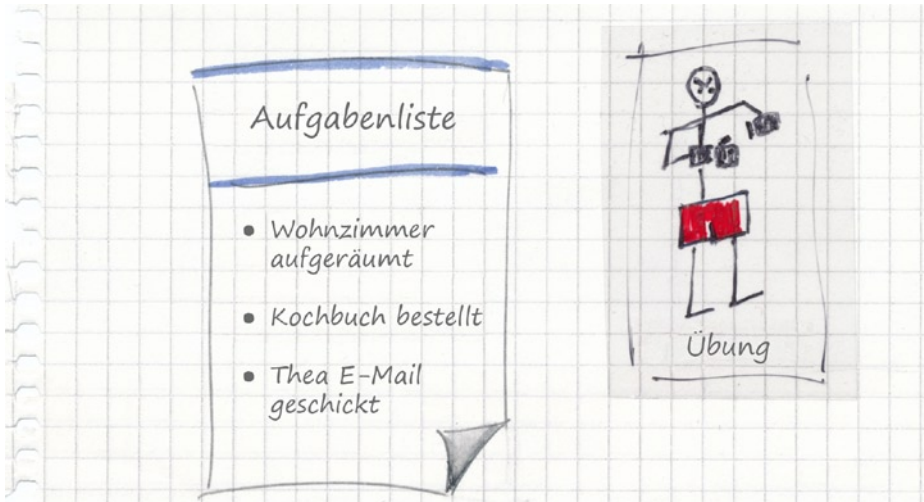 Aufgabenliste
• Wohnzimmer
aufgeräumt
• Kochbuch bestellt
• Thea E-Mail
geschickt
Übung